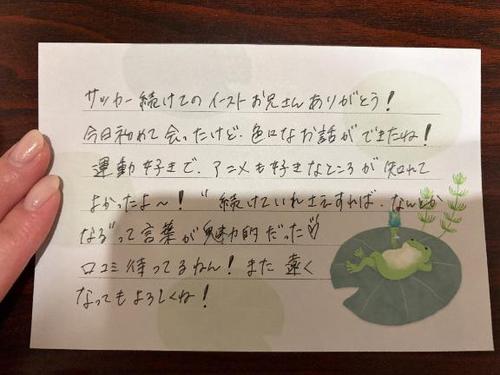 サッカー続けてのイーストお兄さんありがとう!
今日初めて会ったけど、色んなお話ができたね!
運動好きで、アニメも好きなところが知れて
よかったよ〜! "続けていれさえすれば、なんとか
なる"って言葉が魅力的だった♡
口コミ待ってるねん! また遠く
なってもよろしくね!